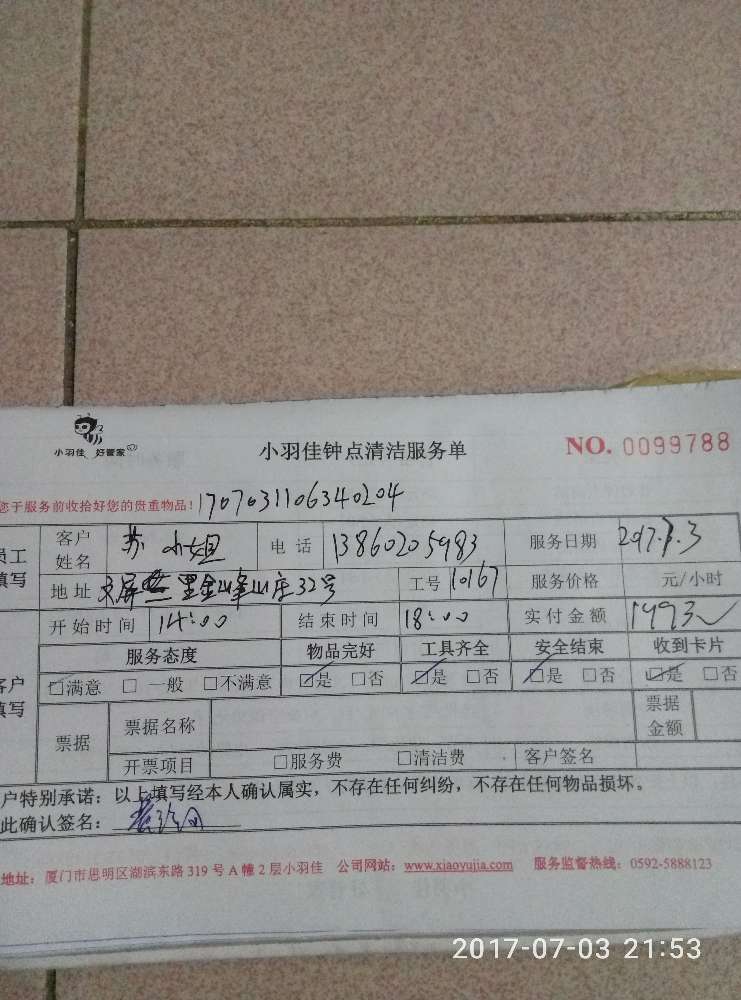 小羽佳 好管家
小羽佳钟点清洁服务单
NO. 0099788
您于服务前收拾好您的贵重物品!
1707031106340204
员工填写
客户姓名 苏小姐 电话 13860205983 服务日期 2017.7.3
地址 文屏 里金山峰山庄32号 工号 10167 服务价格 元/小时
开始时间 14:00 结束时间 18:00 实付金额
客户填写
服务态度 物品完好 工具齐全 安全结束 收到卡片
☑满意 □一般 □不满意 ☑是 □否 ☑是 □否 ☑是 □否 ☑是 □否
票据 票据名称 票据金额
开票项目 □服务费 □清洁费 客户签名
户特别承诺:以上填写经本人确认属实,不存在任何纠纷,不存在任何物品损坏。
此确认签名:
地址:厦门市思明区湖滨东路319号A幢2层小羽佳 公司网站:www.xiaoyujia.com 服务监督热线:0592-5888123
2017-07-03 21:53